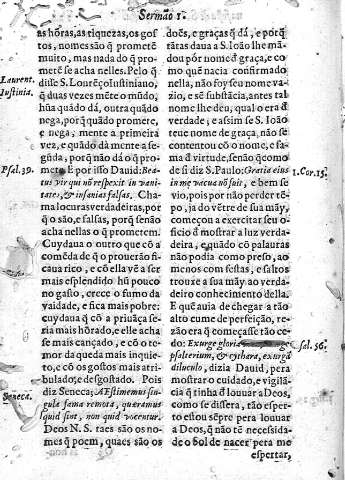 Sermão 1.
as hóras, as riquezas, os gos
tos, nomes são q̃ promete
muito, mas nada do q̃ pro-
mete se acha nelles. Pelo q̃
Laurent.
Iustinia.
disse S. Lourẽço Iustiniano,
q̃ duas vezes mẽte o mũdo,
hũa quãdo dá, outra quãdo
nega, porq̃ quãdo promete,
e nega, mente a primeira
vez, e quãdo dá mente a se-
gũda, porq̃ não dá o q̃ pro-
Psal. 39.
mete. E por isso Dauid: Bea-
tus vir qui nõ respexit in vani-
tates, & insanias falsas. Cha-
ma locuras verdadeiras, por
q̃ o são, e falsas, porq̃ senão
acha nellas o q̃ prometem.
Cuydaua o outro que cõ a
comẽda de q̃ o prouerão fi-
caua rico, e cõ ella vẽ a ser
mais esplendido hũ pouco
no gasto, crece o fumo da
vaidade, e fica mais pobre:
cuydaua q̃ cõ a priuãça se-
ria mais hõrado, e elle acha
se mais cançado, e cõ o te-
mor da queda mais inquie-
to, e cõ os gostos mais atri-
bulado, e desgostado. Pois
Seneca.
diz Seneca: AEstimemus sin-
gula fama remota, quæramus
quid sint, non quid vocentur.
Deos N. S. taes são os no-
mes q̃ poem, quaes são os
doẽs, e graças q̃ dá, e porq̃
tãtas daua a S. Ioão lhe mã-
dou põr nome d̃ graça, e co-
mo quẽ nacia confirmado
nella, não foy seu nome va-
zio, e sẽ sustãtia, antes tal
nome lhe deu, qual o era d̃
verdade; e assim se S. Ioão
teue nome de graça, não se
contentou cõ o nome, e fa-
ma d̃ virtude, senão q̃ como
de si diz S. Paulo: Gratia eius
1. Cor. 15.
in me vacua nõ fuit, e bem se
vio, pois por não perder tẽ-
po, ja do vẽtre de sua mãy,
começou a exercitar seu o-
ficio d̃ mostrar a luz verda-
deira, e quãdo cõ palauras
não podia como preso, ao
menos com festas, e saltos
trouxe a sua mãy ao verda-
deiro conhecimento della.
E quẽ auia de chegar a tão
alto cume de perfeição, re-
zão era q̃ começasse tão ce-
do: Exurge gloria
sal. 56.
psalterium, & cythara, exurgã
diluculo, dizia Dauid, pera
mostrar o cuidado, e vigilã-
cia q̃ tinha d̃ louuar a Deos,
como se dissera, tão esper-
to estou sẽpre pera louuar
a Deos, q̃ não tẽ necessida-
de o Sol de nacer pera me
espertar,